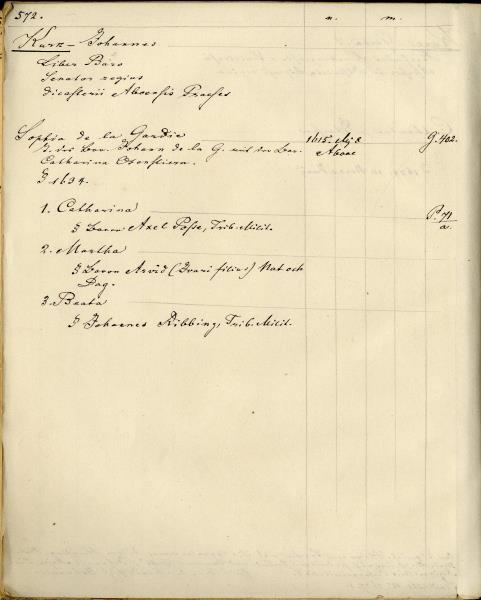 572. n. m.
Kurk - Johannes
Liber Baro
Senator regius
Dicasterii Aboensis Praeses
Sophia de la Gardie 1615. Maj 8 G. 402.
T. des Bar. Johann de la G. mit der Bar. Aboae
Catharina Oxenstierna.
§ 1634.
1. Catharina P. 71
§ Baron Axel Posse, Trib. Milit. a.
2. Martha
§ Baron Arvid (Ivari filius) Nat och
Dag.
3. Beata
§ Johannes Ribbing, Trib. Milit.